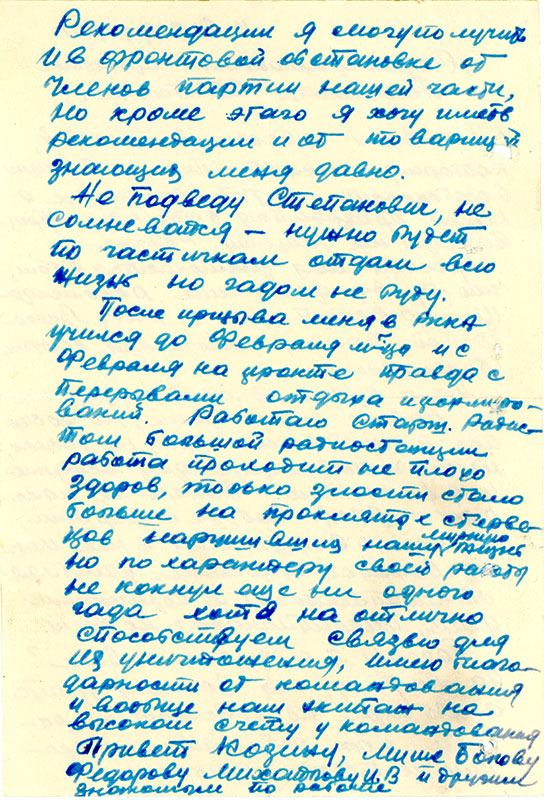 Рекомендации я могу получить
и в фронтовой обстановке от
членов партии нашей части,
но кроме этаго я хочу иметь
рекомендации и от товарищей
знающих меня давно.
Не подведу Степанович, не
сомневатся – нужно будет
по частичкам отдам всю
жизнь но гадом не буду.
После призыва меня в РККА
учился до Февраля м-ца и с
Февраля на фронте правда с
перерывами отдыха и формиро-
ваний. Работаю Старш. Радис-
том большой радиостанции
работа проходит не плохо
здоров, только злости стало
больше на проклятых стерве-
цов нарушивших нашу мирную жизнь
но по характеру своей работы
не кокнул еще ни одного
гада хотя на отлично
способствуем связью для
их уничтожения, имею благо-
дарности от командования
и вообще наш экипаж на
высоком счету у командования
Привет Козину, Мише
Федорову И.В и другим
знакомым по работе